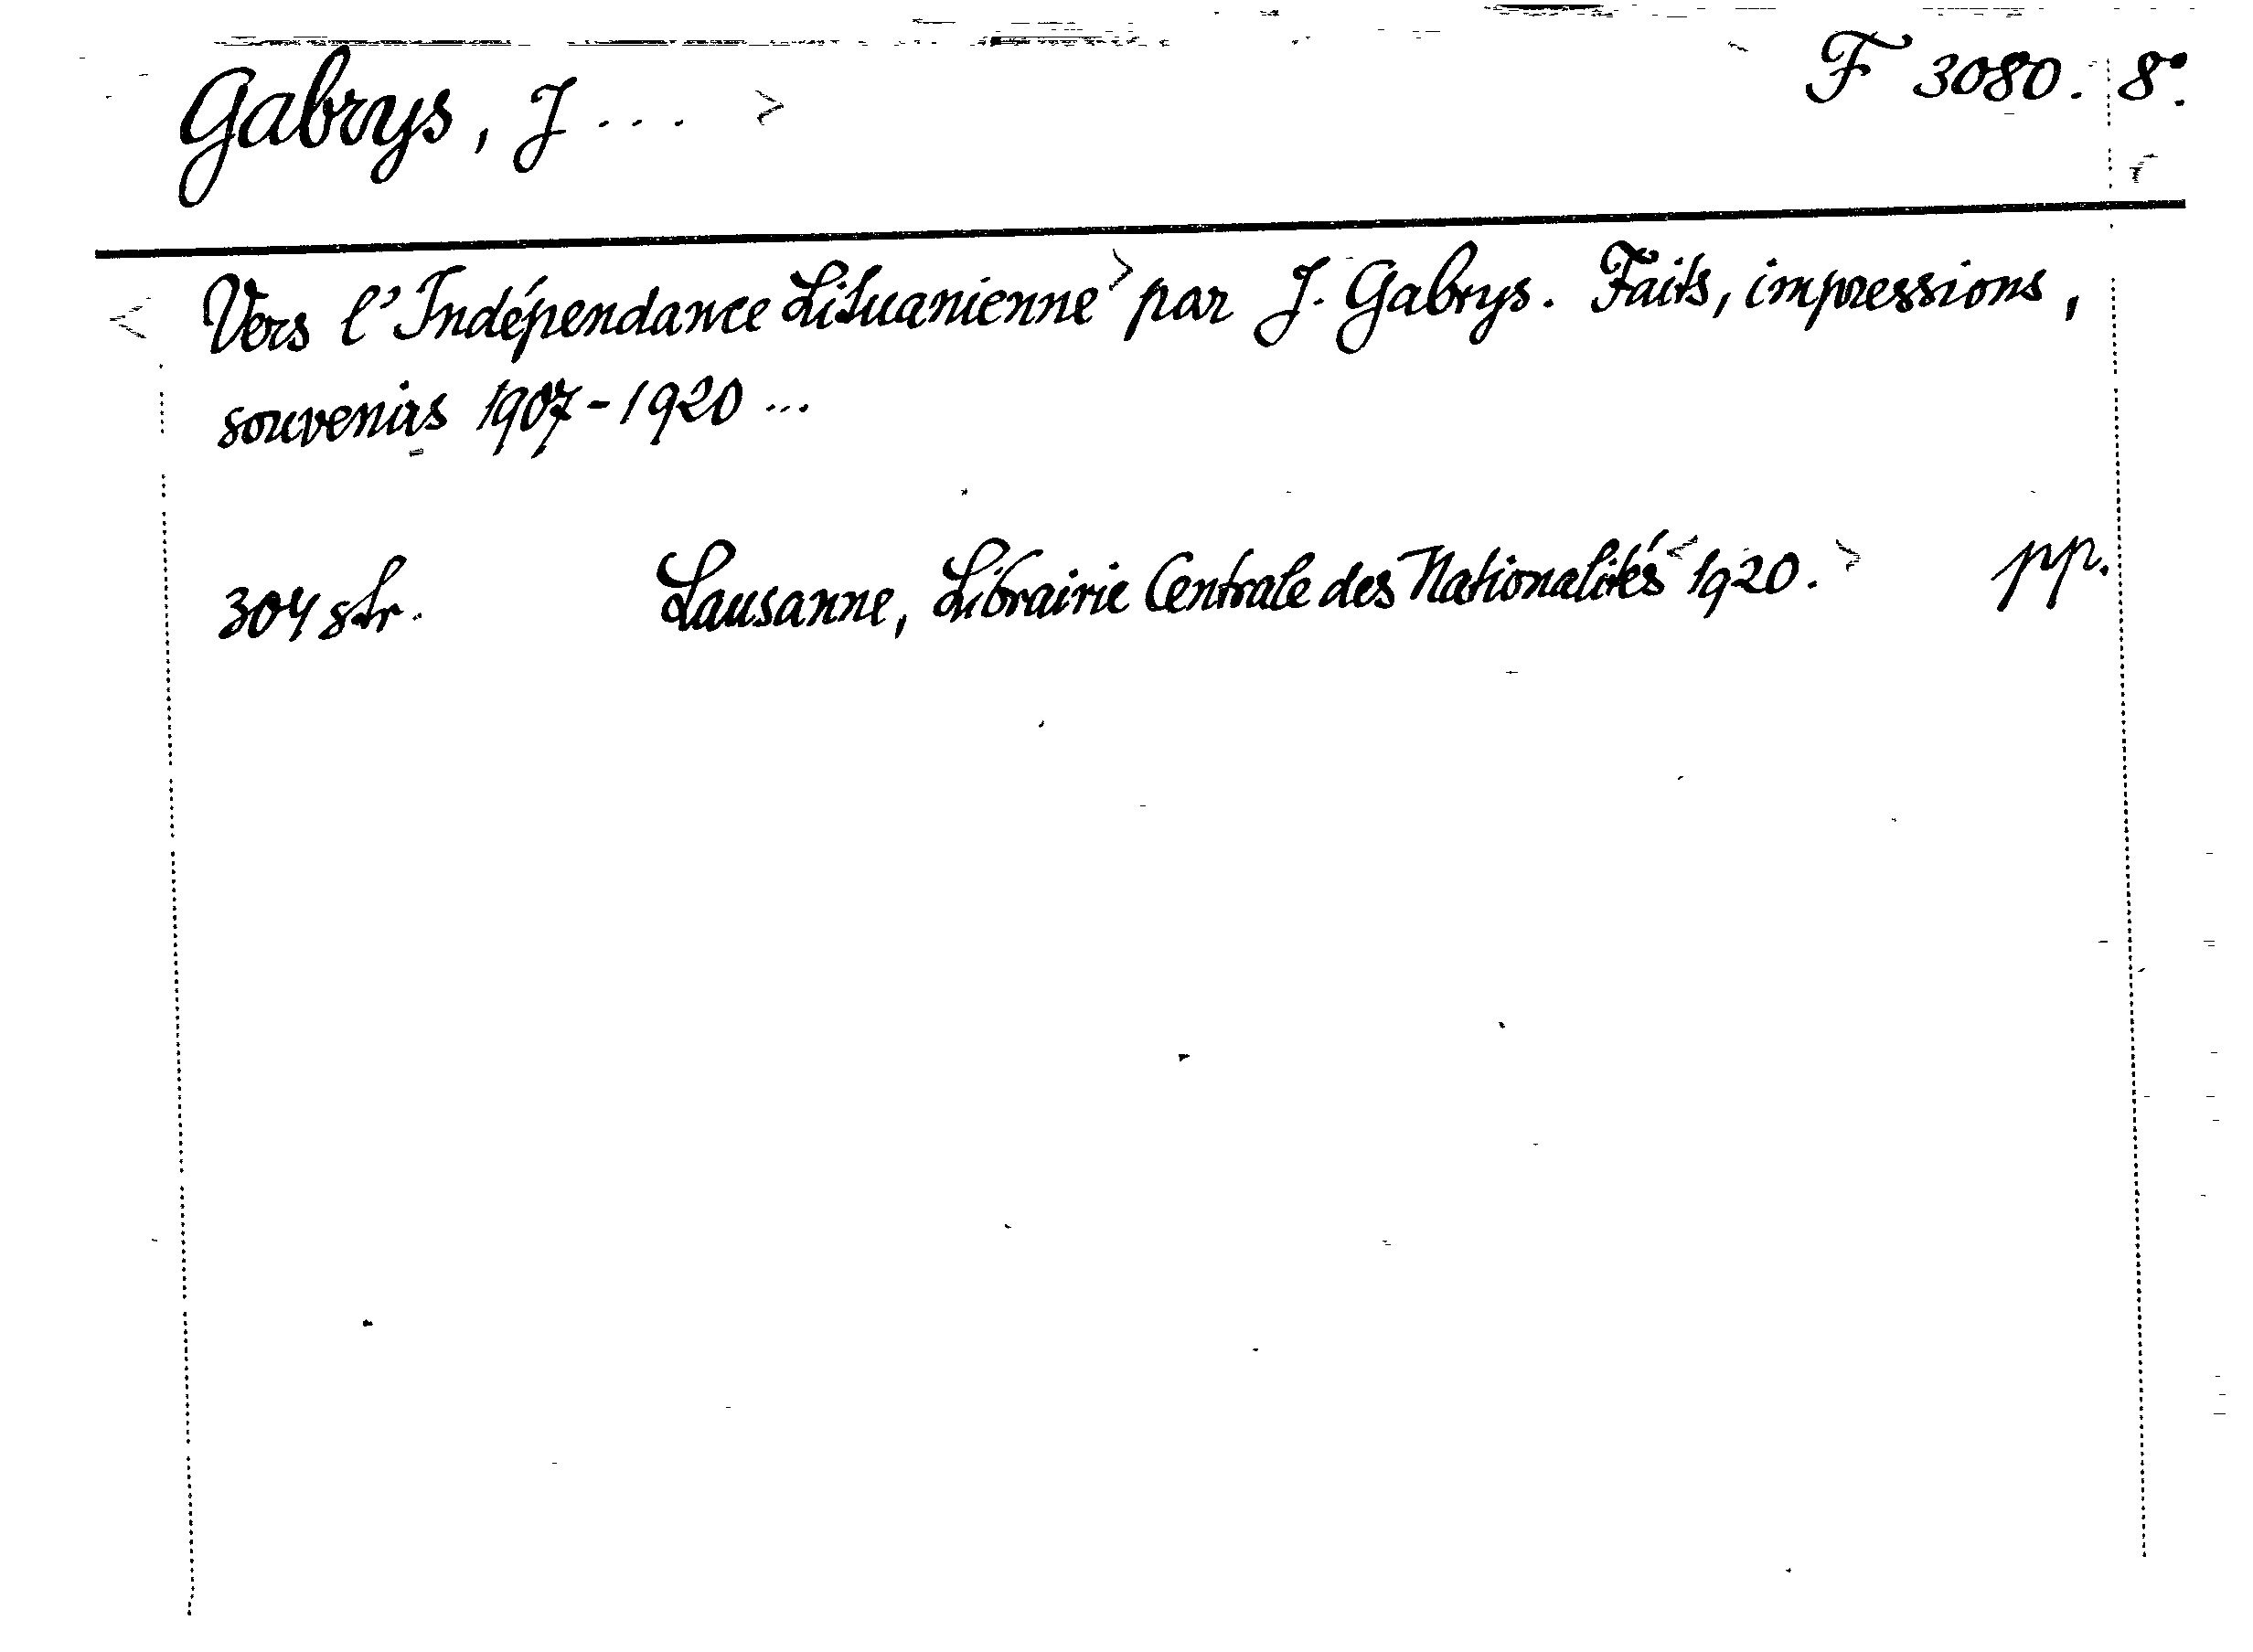 Gabrys, J ... > F 3080. 8°.
< Vers l'Indépendance Lituanienne > par J. Gabrys. Faits, impressions,
souvenirs 1907-1920 ...
304 str. Lausanne, Librairie Centrale des Nationalités < 1920. > pp.